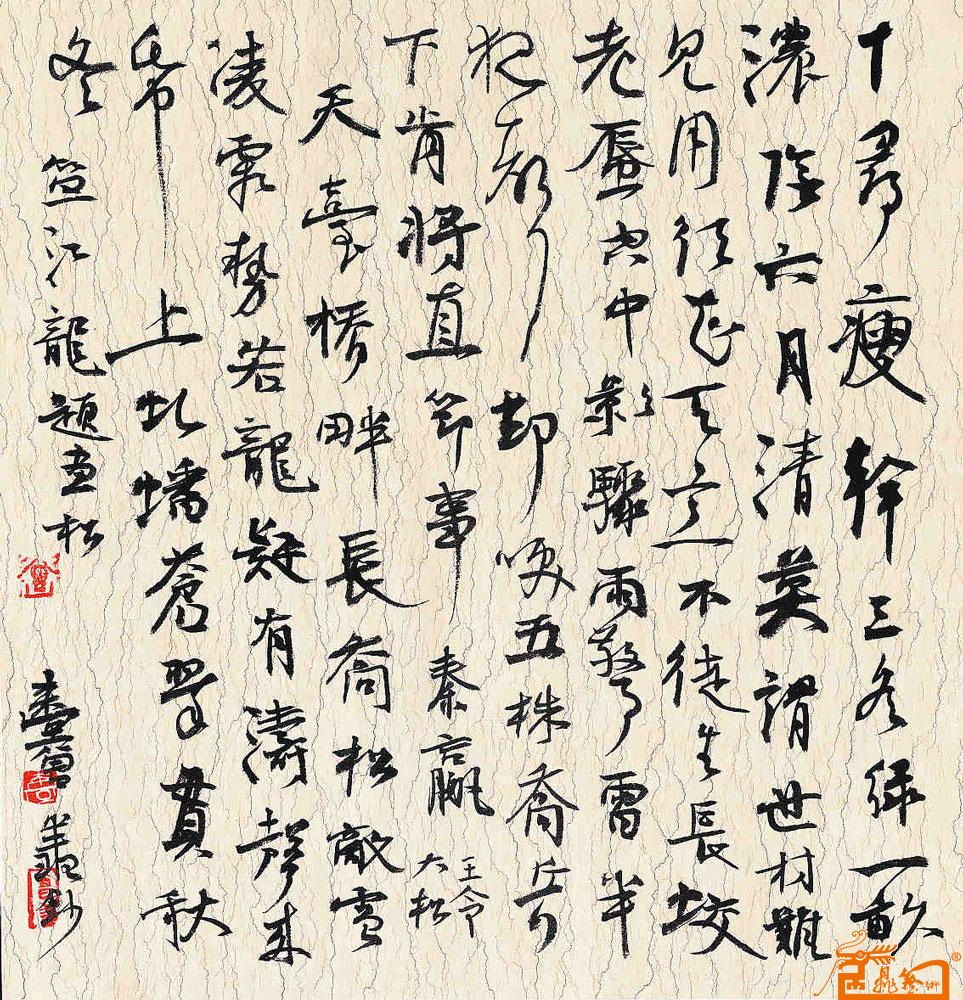 十尋瘦幹三冬緑一畝
濃陰六月清莫謂世材難
見用須知天意不徒生長蛟
老蜃空中影驟雨驚雷半
夜聲却笑五株喬岳
下肯將直節事秦嬴
王令
大松
天臺橋畔長喬松敵雪
凌霜勢若龍疑有濤聲來
帋上虬蟠蒼翠貫秋
冬 笪江龍題畫松